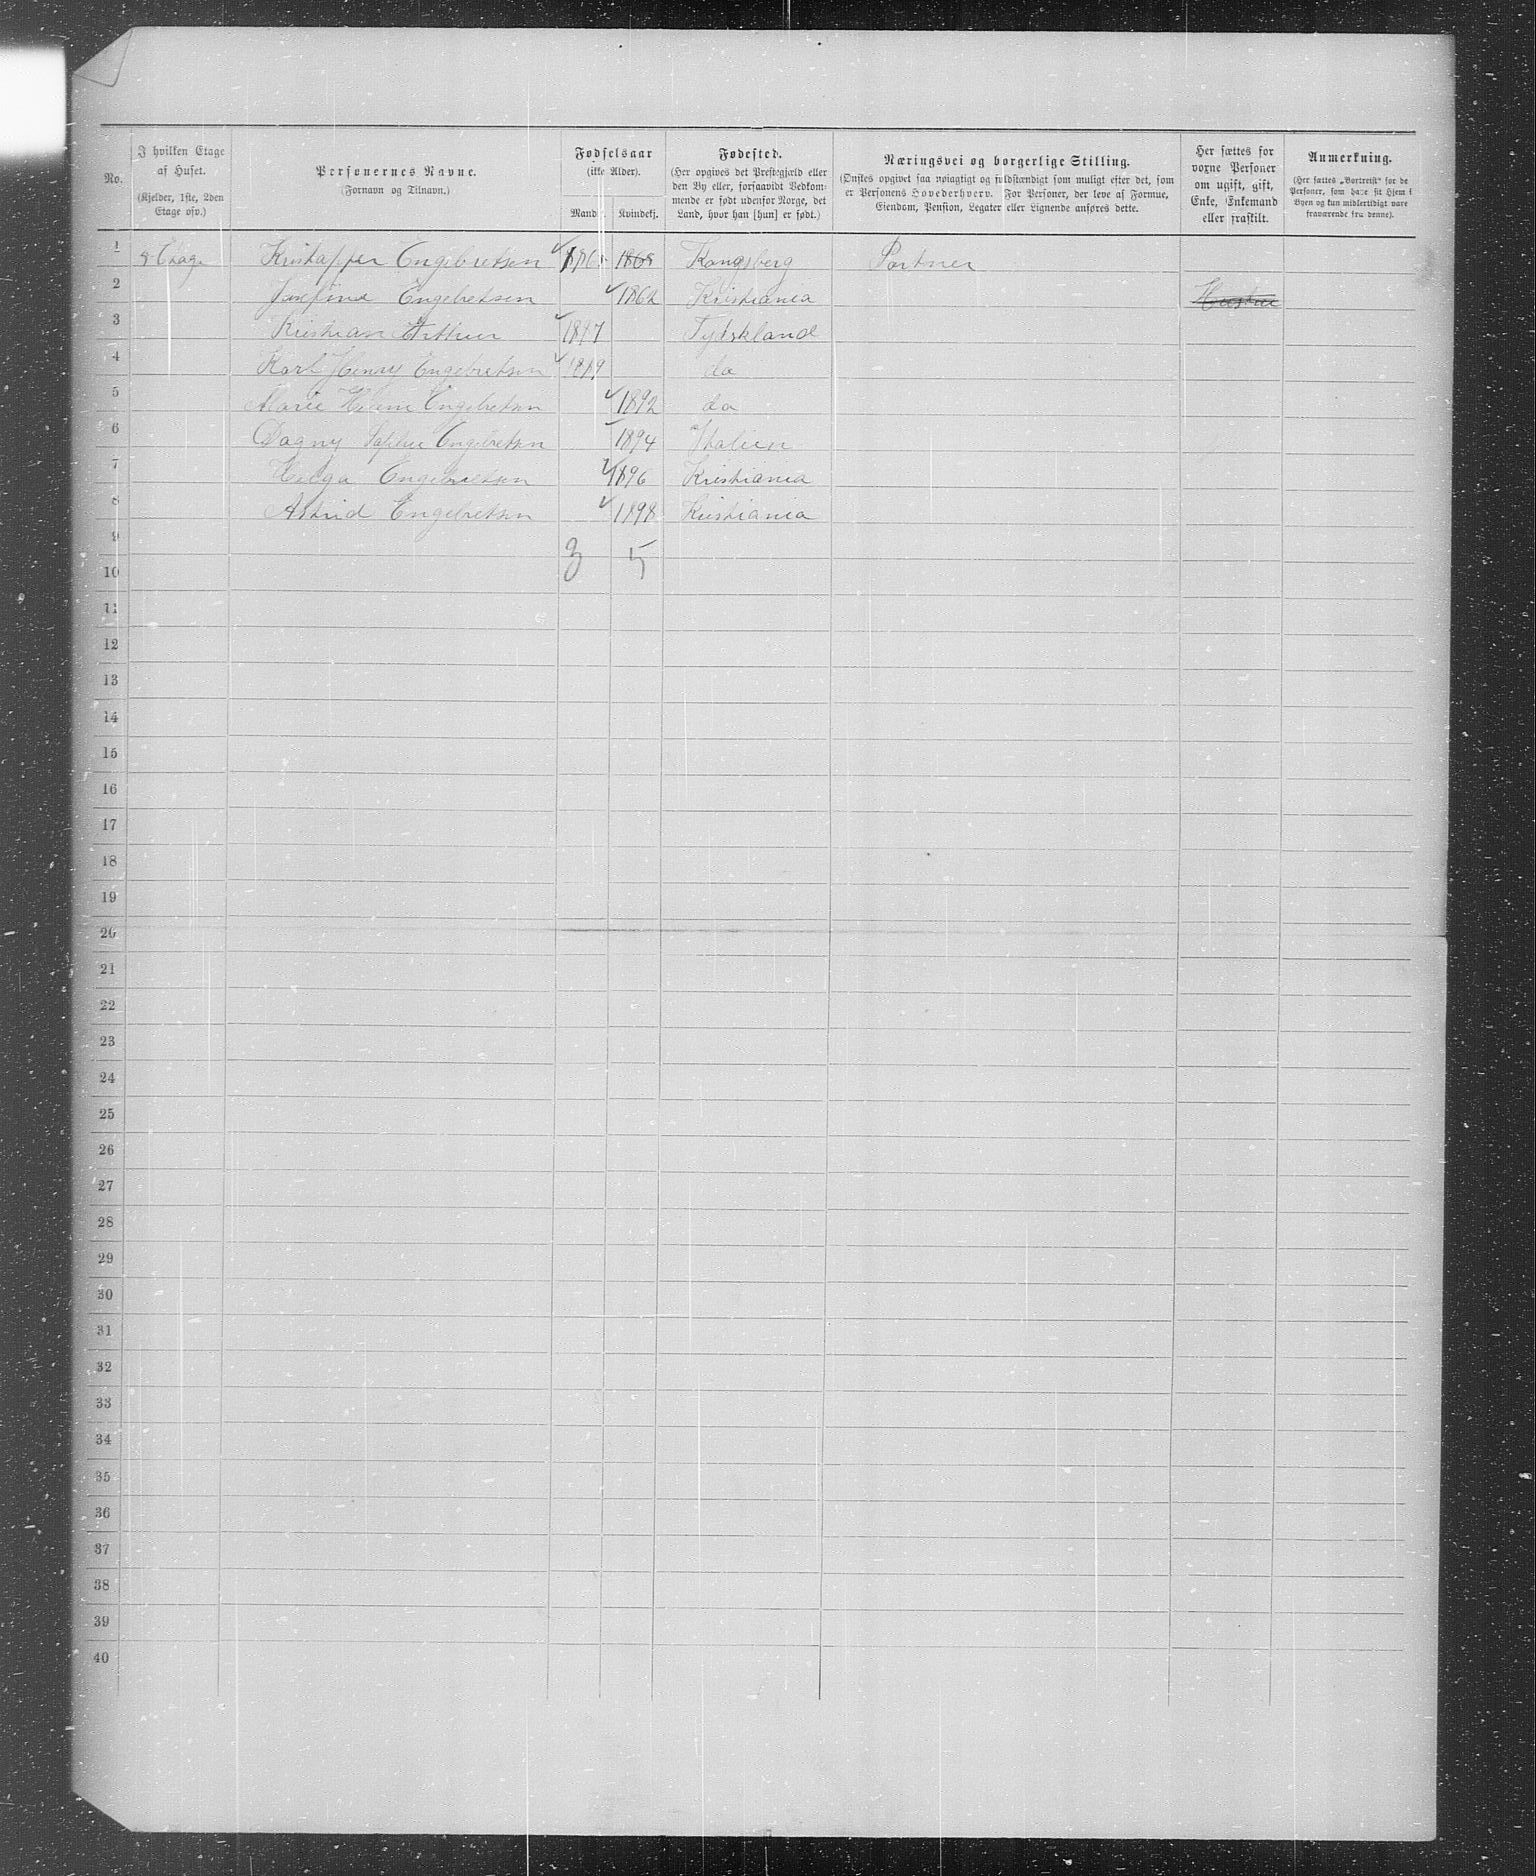 No. I hvilken Etage af Huset. (Kjelder, 1ste, 2den Etage osv.) Personernes Navne. (Fornavn og Tilnavn.) Fødselsaar (ikke Alder). Mandk. Kvindekj. Fødested. (Her opgives det Præstegjæld eller den By eller, forsaavidt Vedkommende er født udenfor Norge, det Land, hvor han [hun] er født.) Næringsvei og borgerlige Stilling. (Ønskes opgivet saa nøiagtigt og fuldstændigt som muligt efter det, som er Personens Hovederhverv. For Personer, der leve af Formue, Eiendom, Pension, Legater eller Lignende anføres dette. Her sættes for voxne Personer om ugift, gift, Enke, Enkemand eller fraskilt. Anmerkning. (Her sættes „Bortreist“ for de Personer, som have sit Hjem i Byen og kun midlertidigt være fraværende fra denne).
1 Etage Kristoffer Engebretsen 1868 Kongsberg Portner
2 Josefine Engebretsen 1862 Kristiania Hustru
3 Kristian Arthur 1887 Tydskland
4 Karl Henry Engebretsen 1889 do
5 Marie Engebretsen 1892 do
6 Dagny Sofie Engebretsen 1894 Italien
7 Helga Engebretsen 1896 Kristiania
8 Astrid Engebretsen 1898 Kristiania
9
3 5
10
11
12
13
14
15
16
17
18
19
20
21
22
23
24
25
26
27
28
29
30
31
32
33
34
35
36
37
38
39
40